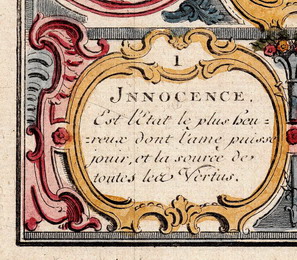 1
JNNOÇENCE.
Est l'état le plus heu=
=reux dont l'ame puisse
jouir, et la source de
toutes les Vertus.